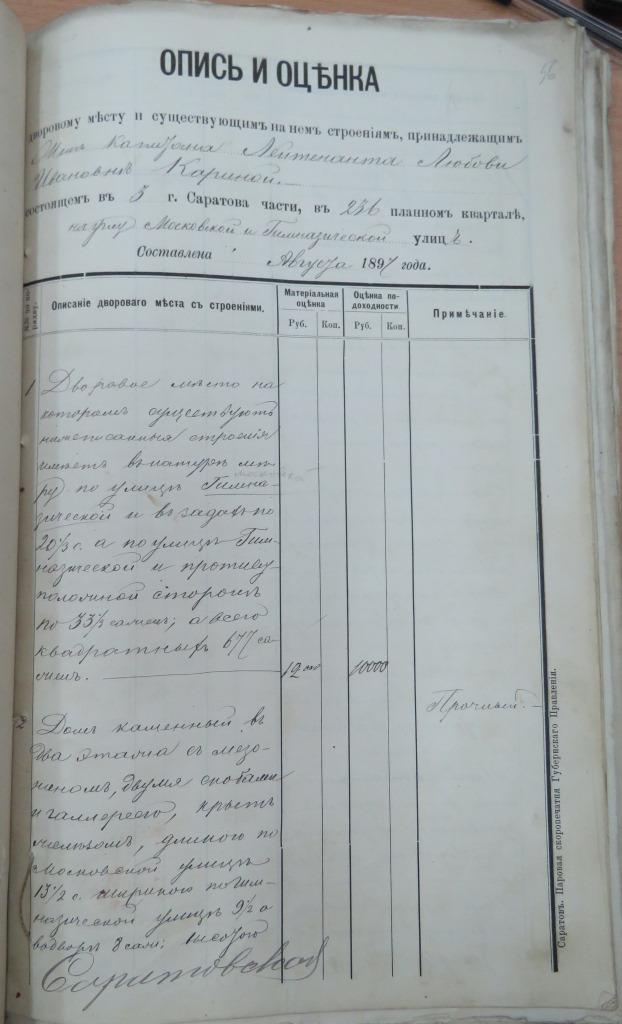 56
ОПИСЬ И ОЦѢНКА
дворовому мѣсту и существующимъ на немъ строенiямъ, принадлежащимъ
Капитана Лейтенанта Любови
Ивановнѣ Кариной.
состоящем въ 3 г. Саратова части, въ 236 планном кварталѣ,
на углу Московской и Гимназической улицъ.
Составлена Августа 1897 года.
№№ по порядку.
Описанiе двороваго мѣста съ строенiями.
Матерiальная оцѣнка
Оцѣнка по доходности
Примѣчанiе.
Руб. Коп. Руб. Коп.
1 Дворовое мѣсто на
которомъ существуютъ
нижеписанныя строенiя
имѣетъ въ натурѣ мѣ-
московской
ру по улицѣ Гимна-
зической и въ задахъ по
20⅓ с. а по улицѣ Гим-
назической и противу-
положной сторонѣ
по 33⅓ сажен; а всего
квадратныхъ 677 са-
жень. 12000 10000
Прочный.
2 Домъ каменный въ
два этажа съ мезо-
ниномъ, двумя
и галлереею, крытъ
желѣзомъ, длиною по
Московской улицѣ
13½ с. шириною по Гим-
назической улицѣ 9½ а
во дворѣ 8 саж; высотою
Саратовской
Саратовъ. Паровая скоропечатня Губернскаго Правленiя.